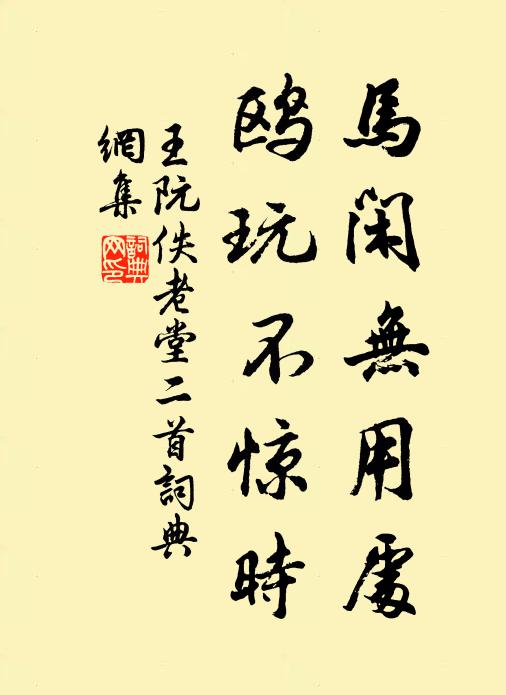 馬閑無用處
鸥玩不惊時
王阮佚老堂二首詞典
網集
詞典
网印